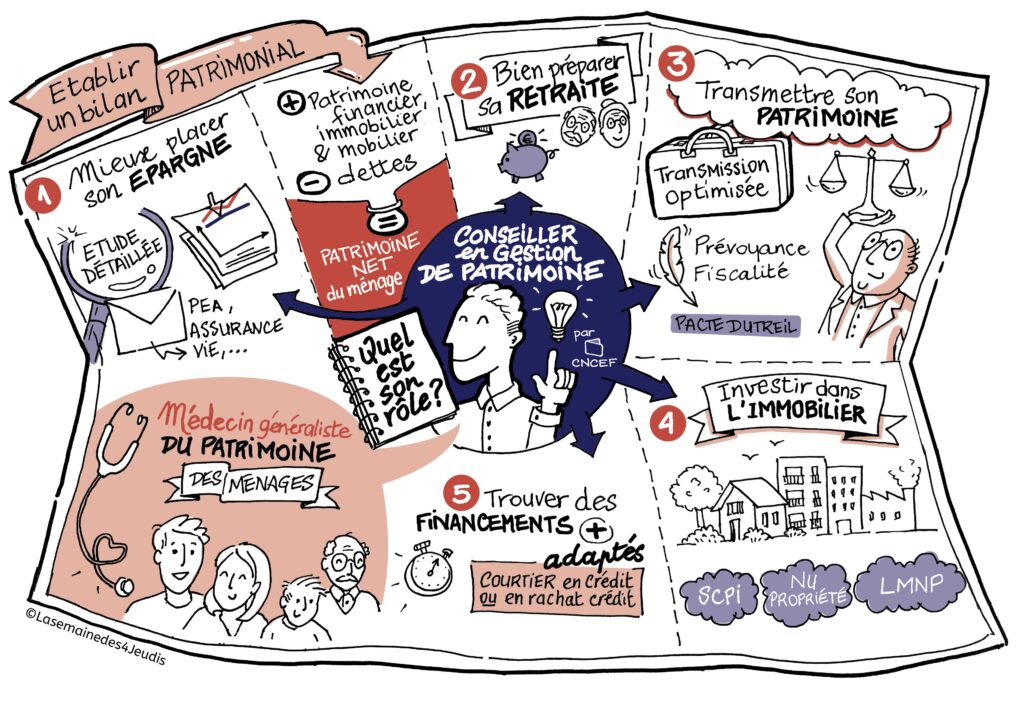 Etablir
un bilan
PATRIMONIAL
1
Mieux placer
son EPARGNE
ETUDE
DÉTAILLÉE
PEA,
ASSURANCE
VIE,...
+ Patrimoine
financier,
immobilier
& mobilier
- dettes
=
PATRIMOINE
NET
du ménage
2
Bien préparer
sa RETRAITE
€
3
Transmettre son
PATRIMOINE
Transmission
optimisée
Prévoyance
Fiscalité
PACTE DUTREIL
CONSEILLER
en Gestion
DE PATRIMOINE
par
CNCEF
Quel
est
son
rôle?
Médecin généraliste
DU PATRIMOINE
DES MÉNAGES
4
Investir dans
L'IMMOBILIER
SCPI
NU
PROPRIÉTÉ
LMNP
5
Trouver des
FINANCEMENTS +
adaptés
COURTIER en crédit
ou en rachat crédit
©Lasemainedes4Jeudis